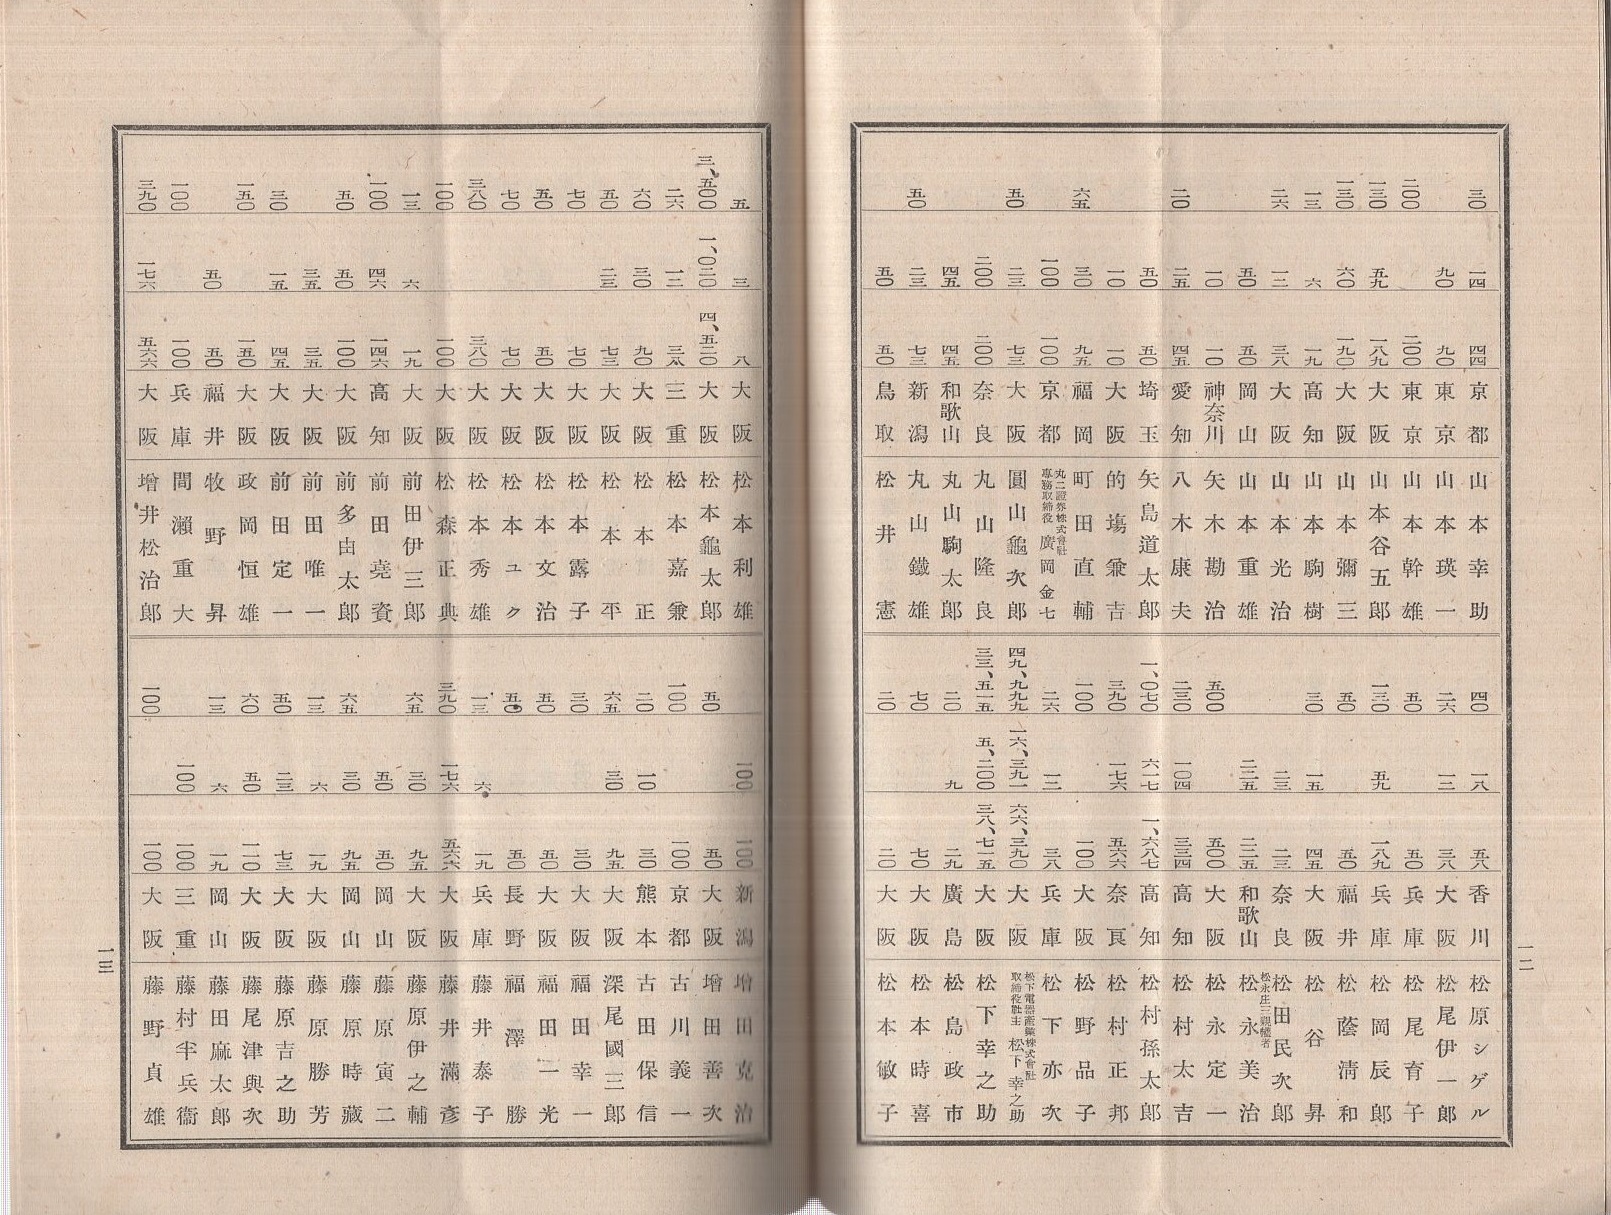 三〇 一四 四四 京都 山本幸助
九〇 九〇 東京 山本瑛一
二〇〇 二〇〇 東京 山本幹雄
一三〇 五九 一八九 大阪 山本谷五郎
一三〇 六〇 一九〇 大阪 山本彌三
一三 六 一九 高知 山本駒樹
二六 一二 三八 大阪 山本光治
五〇 五〇 岡山 山本重雄
一〇 一〇 神奈川 矢木勘治
二〇 二五 四五 愛知 八木康夫
五〇 五〇 埼玉 矢島道太郎
一〇 一〇 大阪 的塲兼吉
六五 三〇 九五 福岡 町田直輔
一〇〇 一〇〇 京都 丸二證券株式會社專務取締役 廣岡金七
五〇 二三 七三 大阪 圓山龜次郎
二〇〇 二〇〇 奈良 丸山隆良
四五 四五 和歌山 丸山駒太郎
五〇 二三 七三 新潟 丸山鐵雄
五〇 五〇 鳥取 松井憲
四〇 一八 五八 香川 松原シゲル
二六 一二 三八 大阪 松尾伊一郎
五〇 五〇 兵庫 松尾育子
一三〇 五九 一八九 兵庫 松岡辰郎
五〇 五〇 福井 松蔭清和
三〇 一五 四五 大阪 松谷昇
二三 二三 奈良 松田民次郎
二二五 二二五 和歌山 松永庄三親權者 松永美治
五〇〇 五〇〇 大阪 松永定一
二三〇 一〇四 三三四 高知 松村太吉
一、〇七〇 六一七 一、六八七 高知 松村孫太郎
三九〇 一七六 五六六 奈良 松村正邦
一〇〇 一〇〇 大阪 松野品子
二六 一二 三八 兵庫 松下亦次
四九、九九九 一六、三九一 六六、三九〇 大阪 松下電器產業株式會社取締役社主 松下幸之助
三三、五一五 五、二〇〇 三八、七一五 大阪 松下幸之助
二〇 九 二九 廣島 松島政市
七〇 七〇 大阪 松本時喜
二〇 二〇 大阪 松本敏子
一二
五 三 八 大阪 松本利雄
三、五〇〇 一、〇二〇 四、五二〇 大阪 松本龜太郎
二六 一二 三八 三重 松本嘉兼
六〇 三〇 九〇 大阪 松本正
五〇 二三 七三 大阪 松本平
七〇 七〇 大阪 松本露子
五〇 五〇 大阪 松本文治
七〇 七〇 大阪 松本ユク
三八〇 三八〇 大阪 松本秀雄
一〇〇 一〇〇 大阪 松森正典
一三 六 一九 大阪 前田伊三郎
一〇〇 四六 一四六 高知 前田堯資
五〇 五〇 一〇〇 大阪 前多由太郎
三五 三五 大阪 前田唯一
三〇 一五 四五 大阪 前田定一
一五〇 一五〇 大阪 政岡恒雄
五〇 五〇 福井 牧野昇
一〇〇 一〇〇 兵庫 間瀬重大
三九〇 一七六 五六六 大阪 增井松治郎
一〇〇 一〇〇 新潟 增田克治
五〇 五〇 大阪 增田善次
一〇〇 一〇〇 京都 古川義一
二〇 一〇 三〇 熊本 古田保信
六五 三〇 九五 大阪 深尾國三郎
三〇 三〇 大阪 福田幸一
五〇 五〇 大阪 福田一光
五〇 五〇 長野 福澤勝
一三 六 一九 兵庫 藤井泰子
三九〇 一七六 五六六 大阪 藤井滿彥
六五 三〇 九五 大阪 藤原伊之輔
五〇 五〇 岡山 藤原寅二
六五 三〇 九五 岡山 藤原時藏
一三 六 一九 大阪 藤原勝芳
五〇 二三 七三 大阪 藤原吉之助
六〇 五〇 一一〇 大阪 藤尾津與次
一三 六 一九 岡山 藤田麻太郎
一〇〇 一〇〇 三重 藤村半兵衞
一〇〇 一〇〇 大阪 藤野貞雄
一三